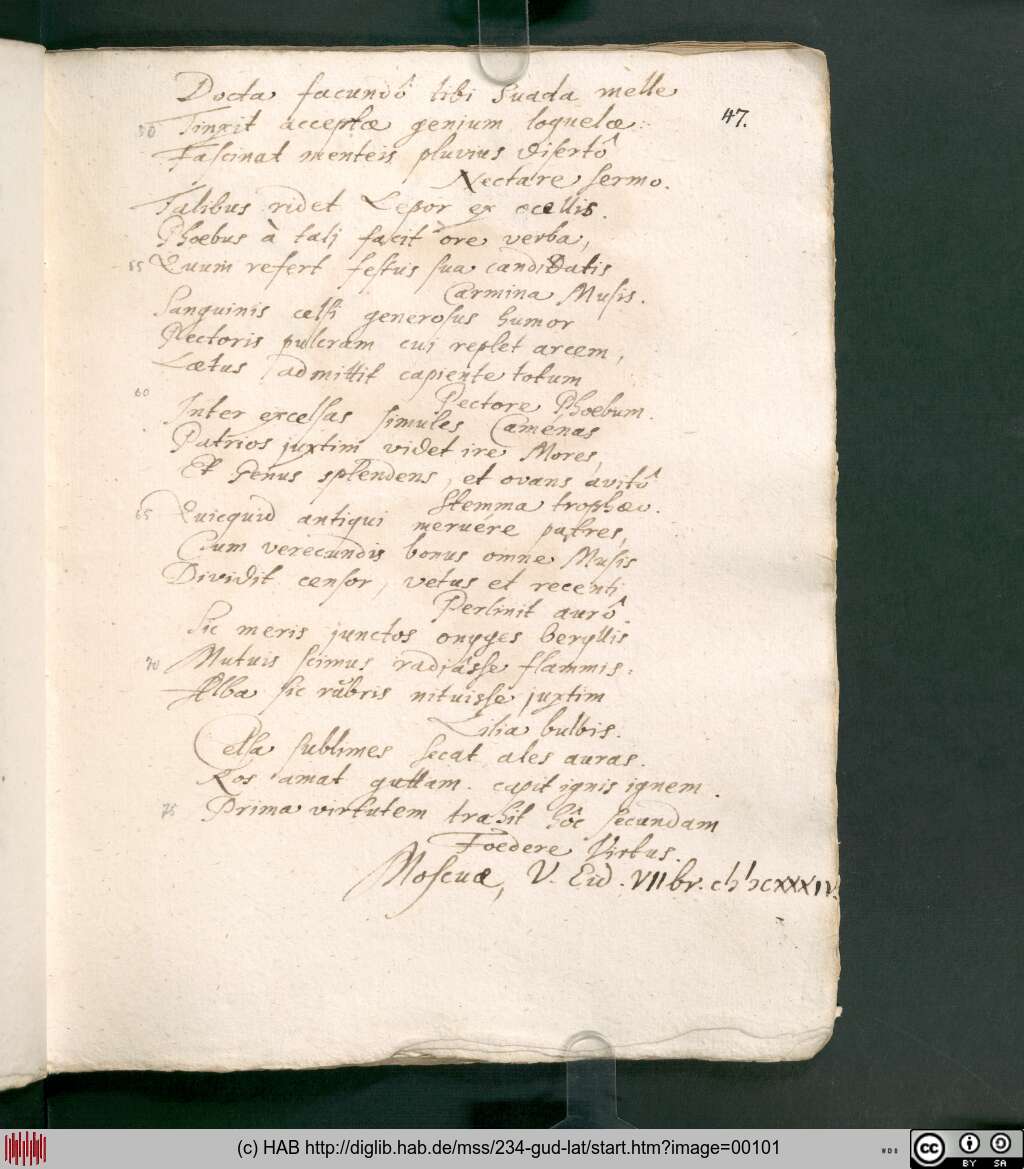 Docta facundô tibi Suada melle
47.
50 Tinxit acceptæ genium loquelæ:
Fascinat menteis pluvius disertô
Nectare sermo.
Talibus ridet Lepor ex ocellis.
Phoebus à talj facit ore verba,
55 Quum refert festus sua candidatis
Carmina Musis.
Sanguinis celsi generosus humor
Pectoris pulcram cuj replet arcem,
Lætus admittit capiente totum
60
Pectore Phoebum.
Inter excelsas simules Camenas
Patrios juxtim videt ire Mores,
Et Genus splendens, et ovans avitô
Stemma trophæo.
65 Quicquid antiqui meruere patres,
Cum verecundis bonus omne Musis
Dividit censor, vetus et recenti
Perlinit aurô.
Sic meris junctos onyges beryllis
70 Mutuis scimus radiâsse flammis:
Alba sic rubris nituisse juxtim
Lilia bulbis.
Cella sublimes secat ales auras.
Ros amat guttam. capit ignis ignem.
75 Prima virtutem trahit hôc secundam
Foedere Virtus.
Moscuæ, V. Eid. VIIbr.
(c) HAB http://diglib.hab.de/mss/234-gud-lat/start.htm?image=00101
WDB
cc BY SA